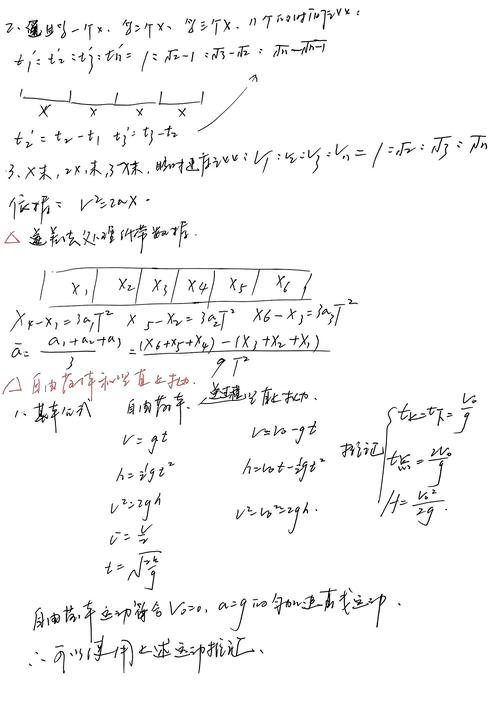 2、通过第一个x、第二个x、第三个x、n个x的时间之比:
t₁′:t₂′:t₃′:tn′= 1:√2-1:√3-√2:√n-√n-1
x x x x
t₂′=t₂-t₁ t₃′=t₃-t₂
3、x末,2x末,3x末,瞬时速度之比:V₁:V₂:V₃:Vn=1:√2:√3:√n
依据:V²=2ax.
△ 逐差法处理纸带数据.
x₁ x₂ x₃ x₄ x₅ x₆
x₄-x₁=3a₁T² x₅-x₂=3a₂T² x₆-x₃=3a₃T²
ā=(a₁+a₂+a₃)/3=((x₆+x₅+x₄)-(x₃+x₂+x₁))/9T²
△ 自由落体和竖直上抛.
1、基本公式 自由落体. 逆过程 竖直上抛.
v=gt v=v₀-gt
h=½gt² h=v₀t-½gt²
v²=2gh v²-v₀²=2gh.
v̄=v/2
t=√(2h/g)
推论 t上=t下=v₀/g
t总=2v₀/g
H=v₀²/2g.
自由落体运动符合V₀=0,a=g的匀加速直线运动.
∴可以使用上述运动推论.